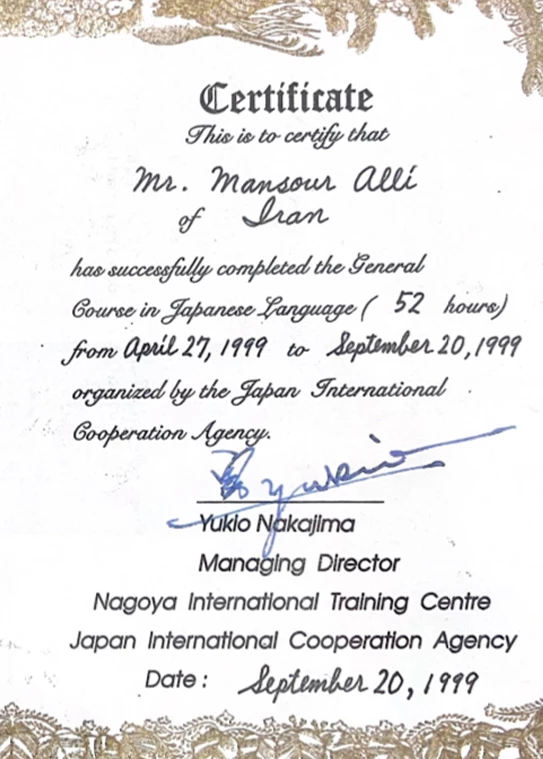 Certificate
This is to certify that
Mr. Mansour Alli
of Iran
has successfully completed the General
Course in Japanese Language ( 52 hours)
from April 27, 1999 to September 20, 1999
organized by the Japan International
Cooperation Agency.
Yukio
Yukio Nakajima
Managing Director
Nagoya International Training Centre
Japan International Cooperation Agency
Date : September 20, 1999